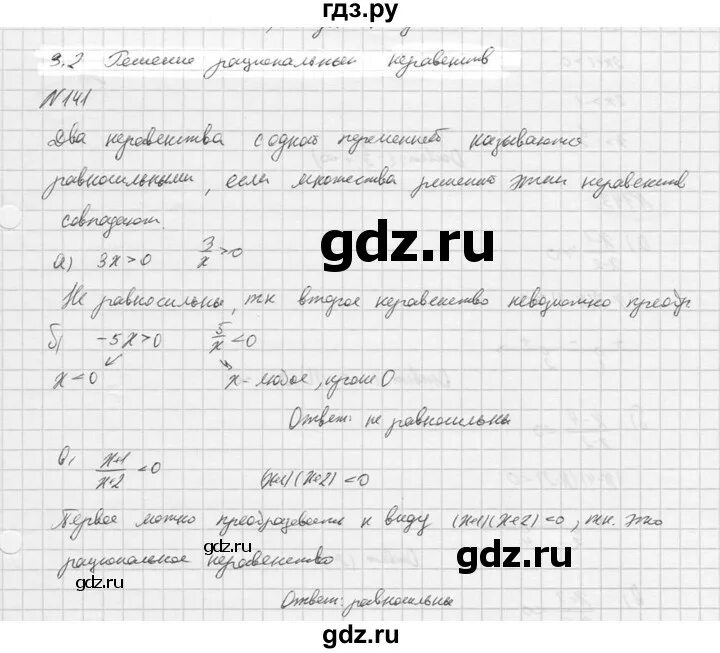 гдз.ру
3.2 Решение рациональных неравенств
№141
Два неравенства с одной переменной называются
равносильными, если множества решений этих неравенств
совпадают.
а) 3x>0 3/x>0
Не равносильны, тк второе неравенство невозможно преобр
б) -5x>0 5/x<0
x<0 x-любое, кроме 0
Ответ: не равносильны
в) x+1/x+2<0 (x+1)(x+2)<0
Первое можно преобразовать к виду (x+1)(x+2)<0, т.к. это
рациональное неравенство
Ответ: равносильны
gdz.ru
gdz.ru
gdz.ru
gdz.ru
gdz.ru